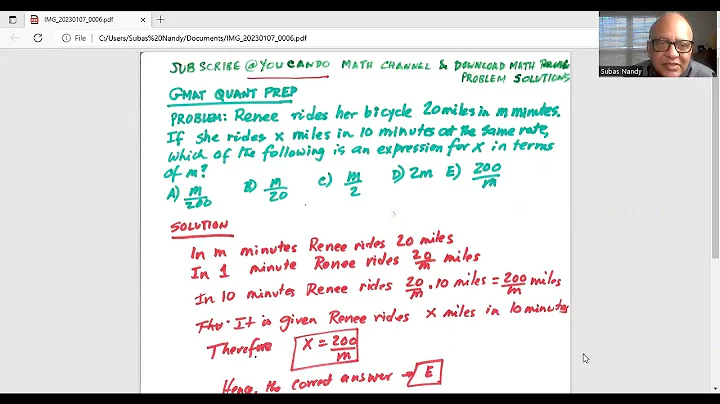 IMG_20230107_0006.pdf
File | C:/Users/Subas%20Nandy/Documents/IMG_20230107_0006.pdf
Subas Nandy
SUBSCRIBE @YOUCANDO MATH CHANNEL & DOWNLOAD MATH
PROBLEM SOLUTIONS
GMAT QUANT PREP
PROBLEM: Renee rides her bicycle 20 miles in m minutes.
If she rides x miles in 10 minutes at the same rate,
which of the following is an expression for x in terms
of m?
A) m/200 B) m/20 C) m/2 D) 2m E) 200/m
SOLUTION
In m minutes Renee rides 20 miles
In 1 minute Renee rides 20/m miles
In 10 minutes Renee rides 20/m . 10 miles = 200/m miles
It is given Renee rides x miles in 10 minutes
Therefore X = 200/m
Hence, the correct answer → E